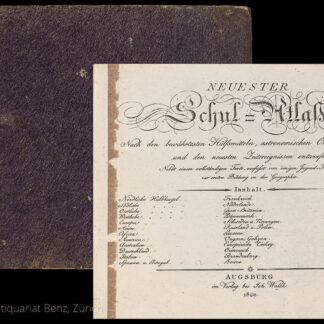 NEUESTER
Schul=Atlaß
Nach den berühmtesten Hülfsmitteln, astronomischen
und den neusten Zeitereignissen
Nebst einem vollständigen Texte, verfasst von einigen Jugend
zur ersten Bildung in der Geographie.
Innhalt.
Nördliche Halbkugel
Südliche
Oestliche
Westliche
Europa
Asien
Africa
America
Australien
Deutschland
Italien
Spanien u. Portugal
Frankreich
Niederlande
Gros=Britanien
Dännemark
Schweden u. Norwegen
Russland u. Polen
Preussen
Ungarn
Europäische Turkey
Oesterreich
Brandenburg
Bayern
AUGSBURG
im Verlag bei Joh. Walch.
tiquariat Benz, Züri